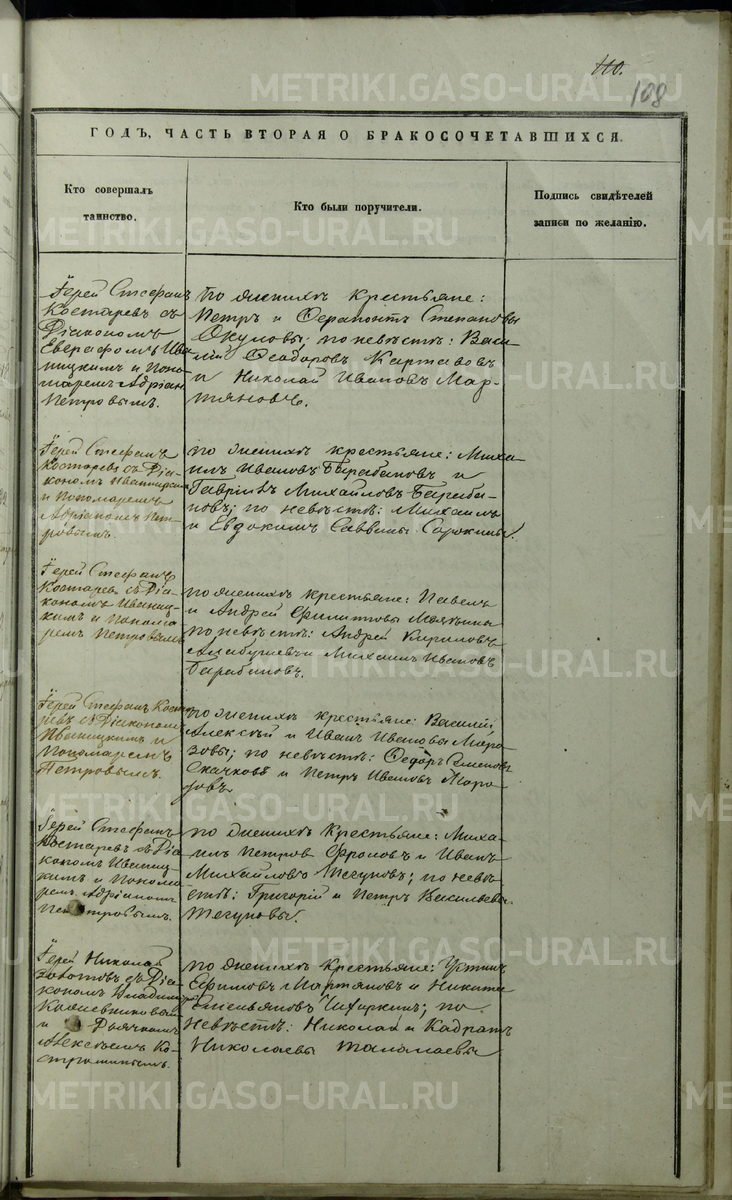 110.
108
ГОДЪ, ЧАСТЬ ВТОРАЯ О БРАКОСОЧЕТАВШИХСЯ.
Кто совершалъ
таинство.
Кто были поручители.
Подпись свидѣтелей
записи по желанію.
Іерей Стефанъ
Костаревъ съ
Діакономъ
Иваницкимъ и Поно-
маремъ Адріан
Петровымъ.
По женихѣ крестьяне:
Петръ и Ферапонтъ Степановы
Окуловы; по невѣстѣ: Васи-
лій Ѳеодоровъ Картавовъ
и Николай Ивановъ Мар-
тяновъ.
Іерей Стефанъ
Костаревъ съ Діа-
кономъ Иваницкимъ
и Пономаремъ
Адріаномъ Пет-
ровымъ.
по женихѣ крестьяне: Миха-
илъ Ивановъ Барабановъ и
Гаврiилъ Михайловъ Бараба-
новъ; по невѣстѣ: Михаилъ
и Евдокимъ Саввины Сорокины.
Іерей Стефанъ
Костаревъ съ Діа-
кономъ Иваниц-
кимъ и Понома-
ремъ Петровымъ
по женихѣ крестьяне: Павелъ
и Андрей Филиповы
по невѣстѣ: Андрей Кириловъ
и Михаилъ Ивановъ
Барабановъ.
Іерей Стефанъ Коста-
ревъ съ Діакономъ
Иваницкимъ и
Пономаремъ
Петровымъ.
по женихѣ крестьяне: Василій
Алексѣй и Иванъ Ивановы Моро-
зовы; по невѣстѣ: Ѳедоръ Семеновъ
Скачковъ и Петръ Ивановъ Моро-
зовъ.
Іерей Стефанъ
Костаревъ съ Діа-
кономъ Иваниц-
кимъ и Понома-
ремъ Адріаномъ
Петровымъ.
по женихѣ крестьяне: Миха-
илъ Петровъ Фроловъ и Иванъ
Михайловъ Чегуновъ; по невѣ-
стѣ: Григорій и Петръ Васильевы
Чегуновы.
Іерей Николай
Золотовъ съ Діа-
кономъ Владиміромъ
и Дьячкомъ
Алексѣемъ Ко-
строминымъ.
по женихѣ крестьяне: Устинъ
Ефимовъ Мартяновъ и Никита
Емельяновъ Шихиркинъ; по
невѣстѣ: Николай и Кадратъ
Николаевы Таламаевы
METRIKI.GASO-URAL.RU